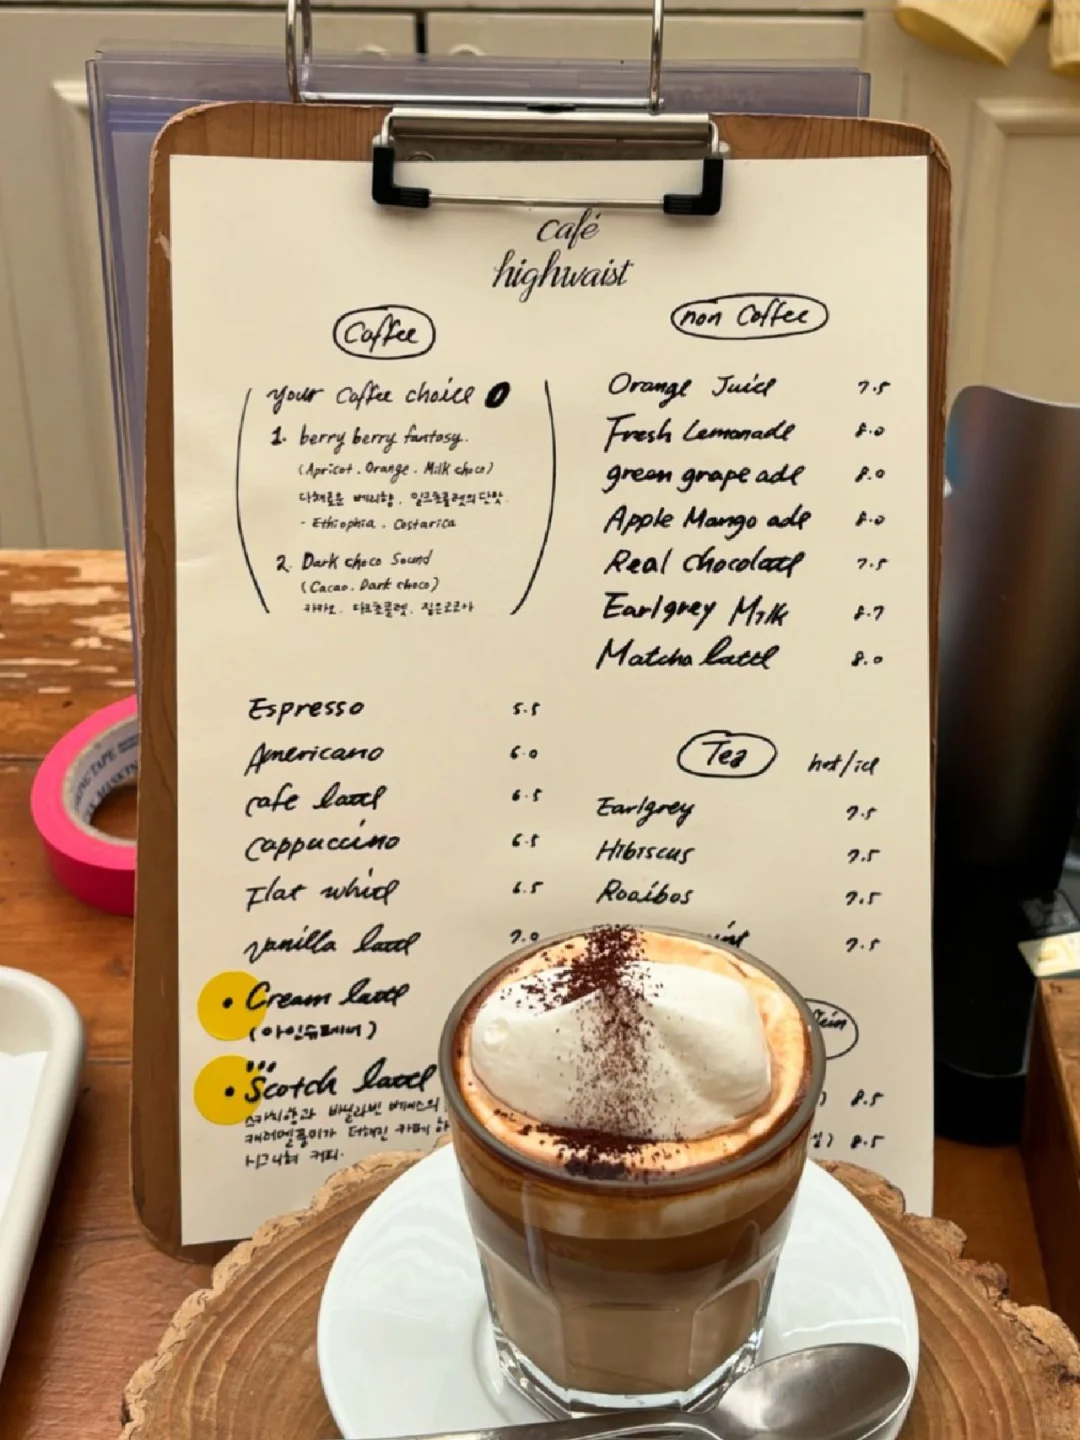 café
highwaist
Coffee
your Coffee choice
1. berry berry fantasy.
(Apricot . Orange . Milk choco)
다채로운 베리향. 밀크초콜렛의 단맛.
- Ethiophia . Costarica
2. Dark choco Sound
(Cacao. Dark choco)
카카오. 다크초콜렛. 짙은
Espresso 5.5
Americano 6.0
cafe latte 6.5
cappuccino 6.5
Flat white 6.5
vanilla latte 7.0
• Cream latte
(아인슈페너)
• Scotch latte
스카치향과 바닐라빈 베이스의
캐러멜풍미가 더해진 카페 하
시그니쳐 커피.
non Coffee
Orange Juice 7.5
Fresh Lemonade 8.0
green grape ade 8.0
Apple Mango ade 8.0
Real chocolate 7.5
Earlgrey Milk 8.7
Matcha latte 8.0
Tea hot/ice
Earlgrey 7.5
Hibiscus 7.5
Rooibos 7.5
7.5
) 8.5
) 8.5